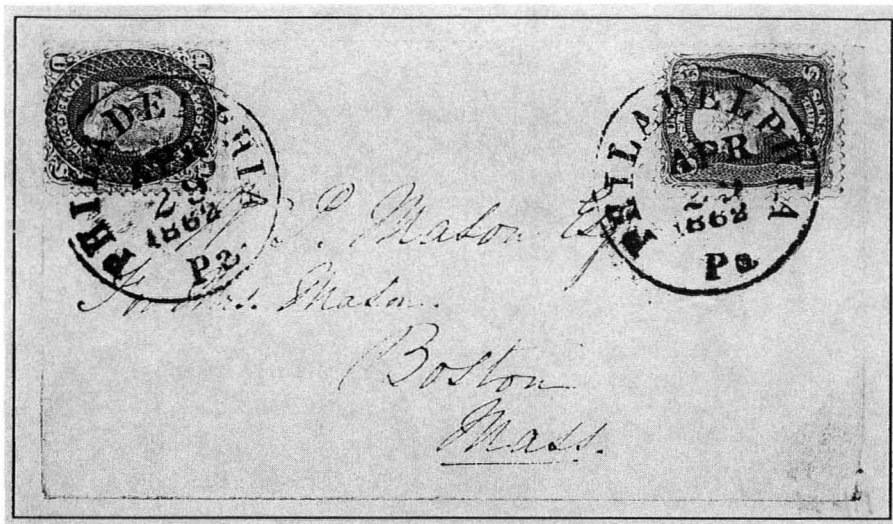 PHILADELPHIA
APR
29
1862
Pa
PHILADELPHIA
APR
29
1862
Pa
P. Mason Esq
For Mrs. Mason.
Boston
Mass.